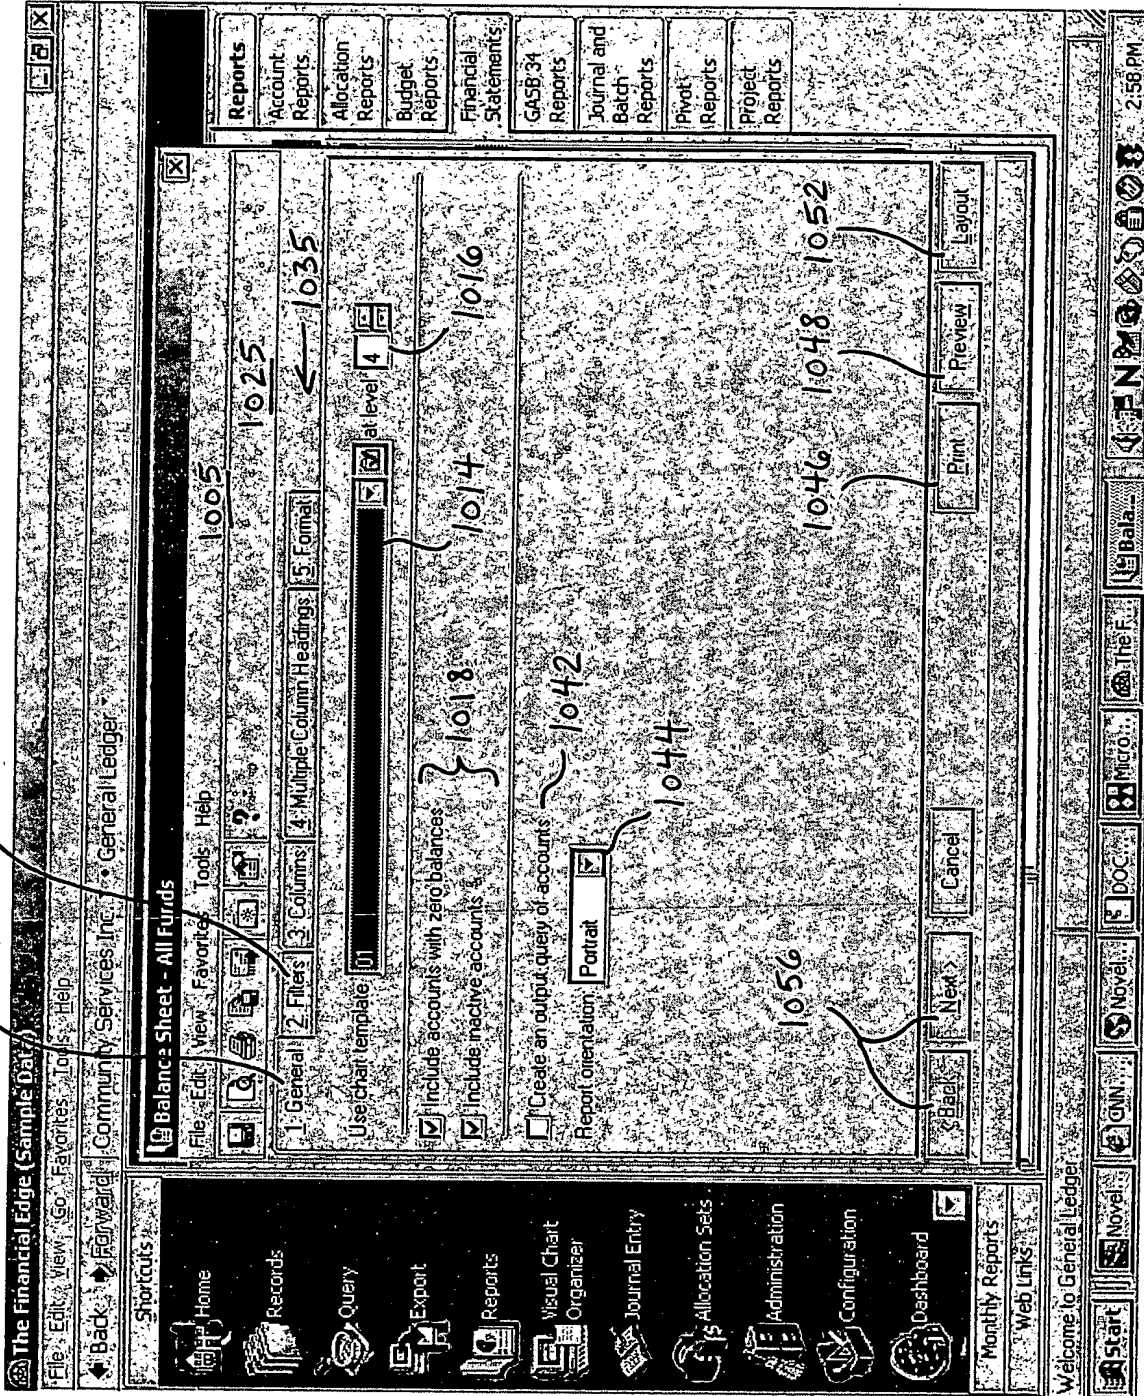 The Financial Edge (Sample Data)
File Edit View Go Favorites Tools Help
Back Forward Community Services Inc. General Ledger
Shortcuts
Home
Records
Query
Export
Reports
Visual Chart
Organizer
Journal Entry
Allocation Sets
Administration
Configuration
Dashboard
Monthly Reports
Web Links
Balance Sheet - All Funds
File Edit View Favorites Tools Help
1005
1025
1: General 2: Filters 3: Columns 4: Multiple Column Headings 5: Format
1035
Use chart template: 01 at level 4
1014
1016
Include accounts with zero balances
Include inactive accounts
1018
Create an output query of accounts
1042
Report orientation: Portrait
1044
1056
1046
1048
1052
< Back Next > Cancel Print Preview Layout
Reports
Account
Reports
Allocation
Reports
Budget
Reports
Financial
Statements
GASB 34
Reports
Journal and
Batch
Reports
Pivot
Reports
Project
Reports
Welcome to General Ledger
Start Novel... CNN... Novel... DOC... Micro... The F... Bala... N 2:58 PM